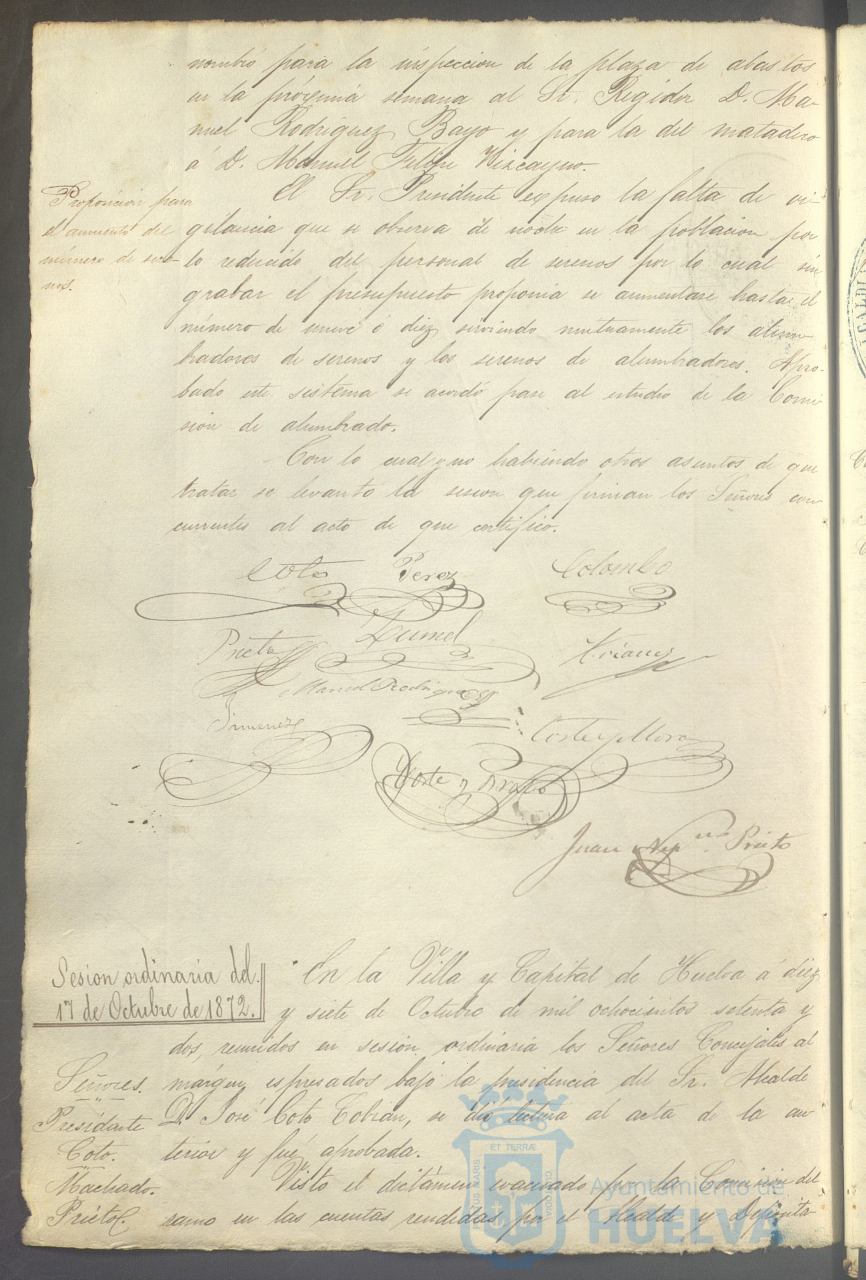 nombró para la inspeccion de la plaza de abastos
en la próxima semana al Sr. Regidor D. Ma-
nuel Rodriguez Bayo y para la del matadero
á D. Manuel Felipe Vizcayno.
Proposicion para
el aumento del
número de sere-
nos.
El Sr. Presidente expuso la falta de vi-
gilancia que se observa de noche en la poblacion por
lo reducido del personal de serenos por lo cual sin
grabar el presupuesto proponia se aumentase hasta el
número de nueve ó diez sirviendo mutuamente los alum-
bradores de serenos y los serenos de alumbradores. Apro-
bado este sistema se acordó pase al estudio de la Comi-
sion de alumbrado.
Con lo cual y no habiendo otros asuntos de que
tratar se levantó la sesion que firman los Señores con-
currentes al acto de que certifico.
Coto Perez Colombo
Prieto
Manuel Rodriguez
Jimenez Corte y Mora
Juan Nep.no Prieto
Sesion ordinaria del
17 de Octubre de 1872.
En la Villa y Capital de Huelva á diez
y siete de Octubre de mil ochocientos setenta y
dos, reunidos en sesion ordinaria los Señores Concejales al
márgen espresados bajo la presidencia del Sr. Alcalde
D. José Coto Cobian, se dió lectura al acta de la an-
terior y fué aprobada.
Señores.
Presidente
Coto.
Machado.
Prieto.
Visto el dictámen evacuado por la Comision del
ramo en las cuentas rendidas por el Alcalde y Deposita-
ET TERRÆ
Ayuntamiento de
HUELVA